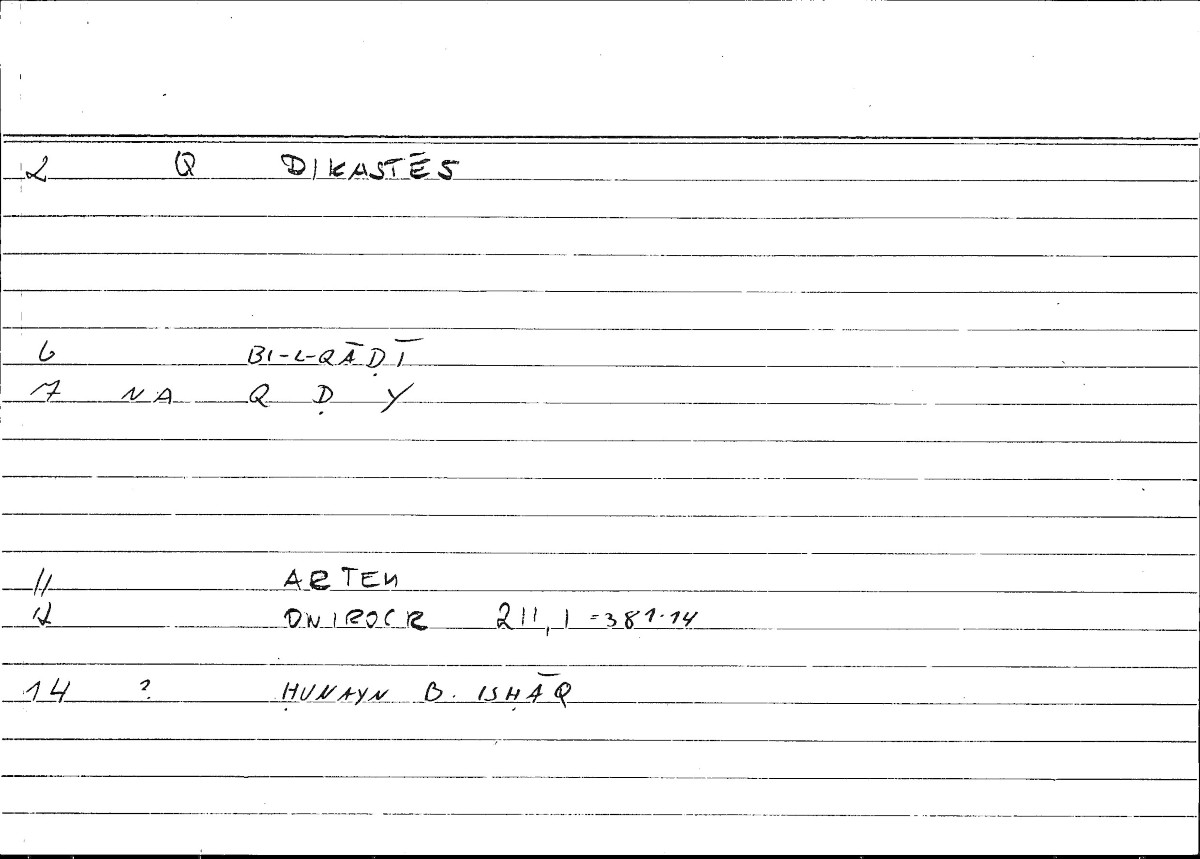 2 Q DIKASTĒS
6 BI-L-QĀḌĪ
7 NA Q Ḍ Y
11 ARTEM
12 ONIROCR 211,1 = 381.14
14 ? ḤUNAYN B. ISḤĀQ